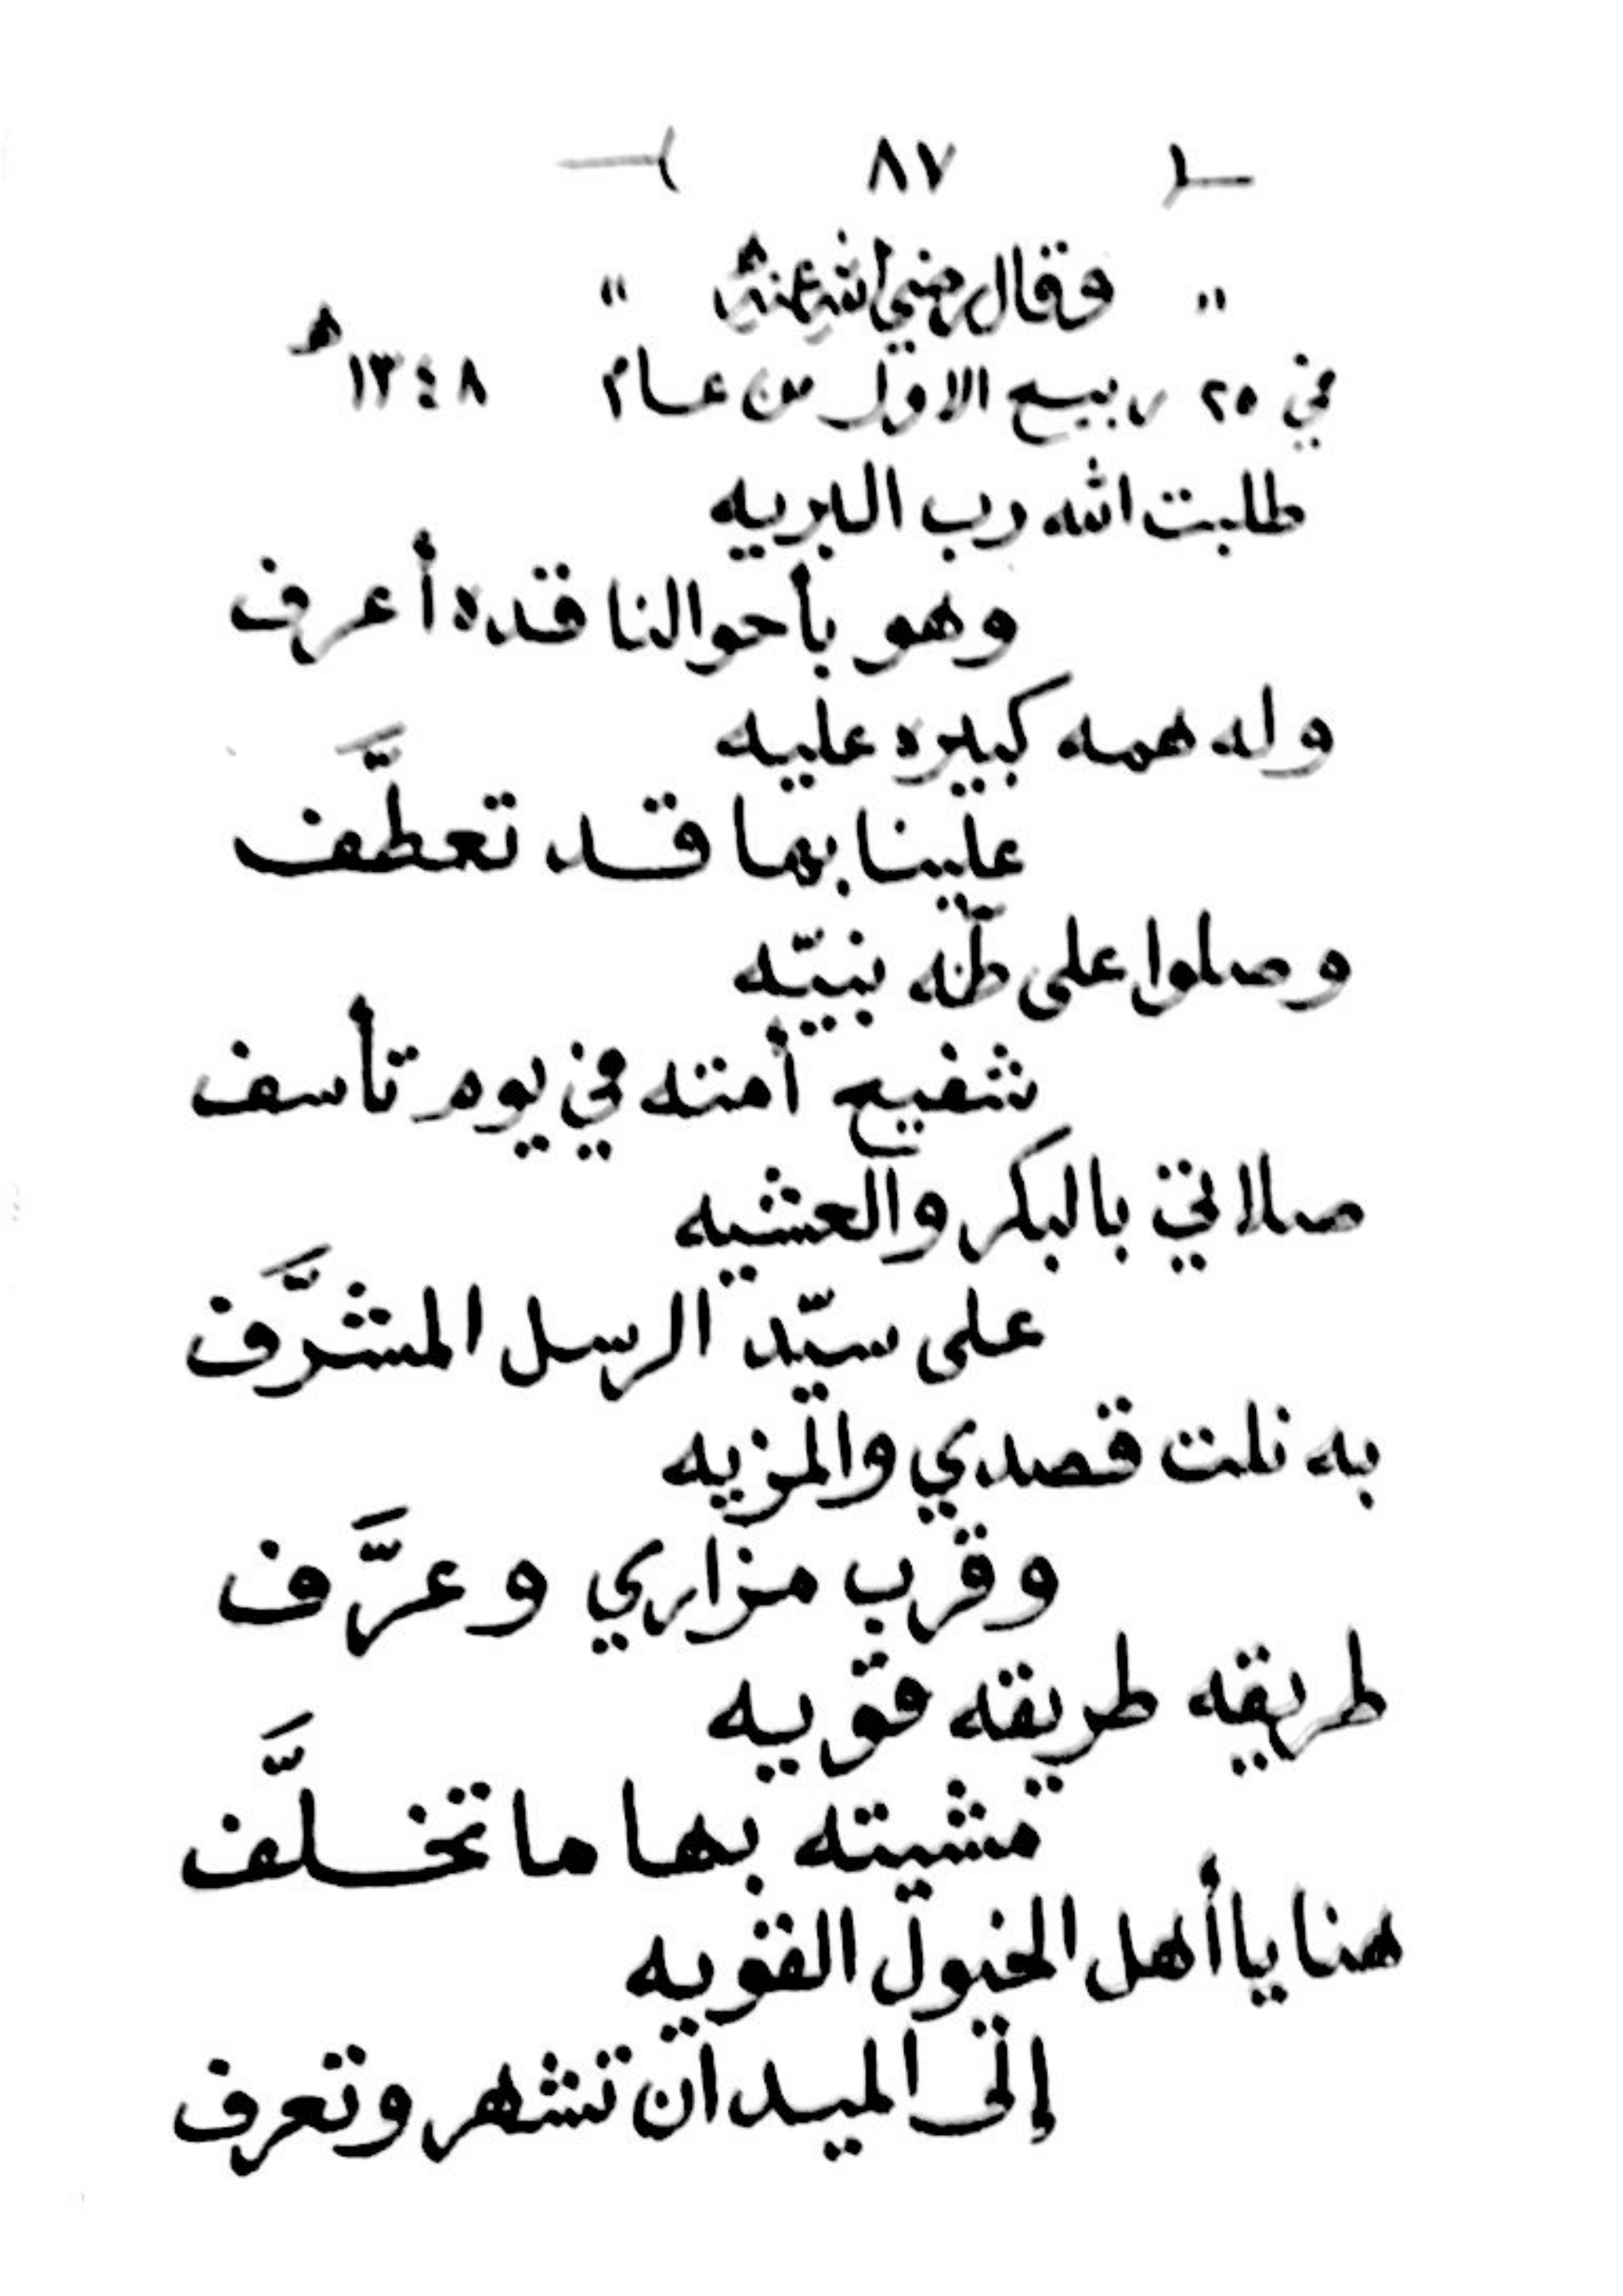 ( ٨٧ )
" وقال رضي الله عنه "
في ٢٥ ربيع الاول من عام ١٣٤٨ هـ
طلبت الله رب البريه
وهو بأحوالنا قده أعرف
وله همه كبيره عليه
علينا بها قد تعطَّف
وصلوا على طٰه نبيّه
شفيع أمته في يوم تأسف
صلاتي بالبكر والعشيه
على سيّد الرسل المشرَّف
به نلت قصدي والمزيه
وقرب مزاري وعرَّف
طريقه طريقه قويه
مشيته بها ما تخلَّف
هنا يا أهل الخيول القويه
إلى الميدان تشهر وتعرف